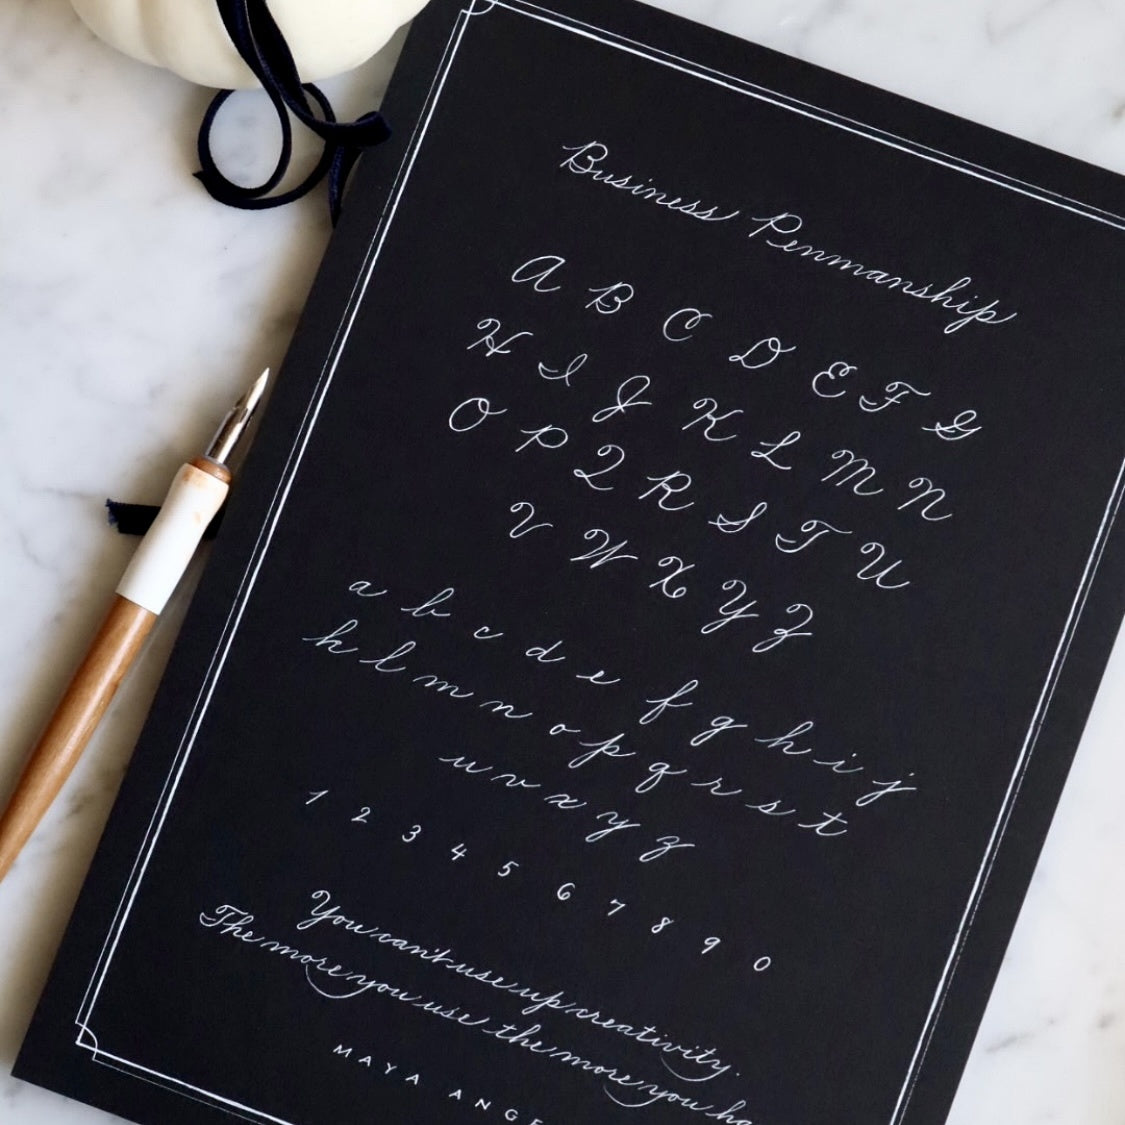 Business Penmanship
A B C D E F G
H I J K L M N
O P Q R S T U
V W X Y Z
a b c d e f g h i j
k l m n o p q r s t
u v x y z
1 2 3 4 5 6 7 8 9 0
You can't use up creativity.
The more you use the more you ha
MAYA ANGE